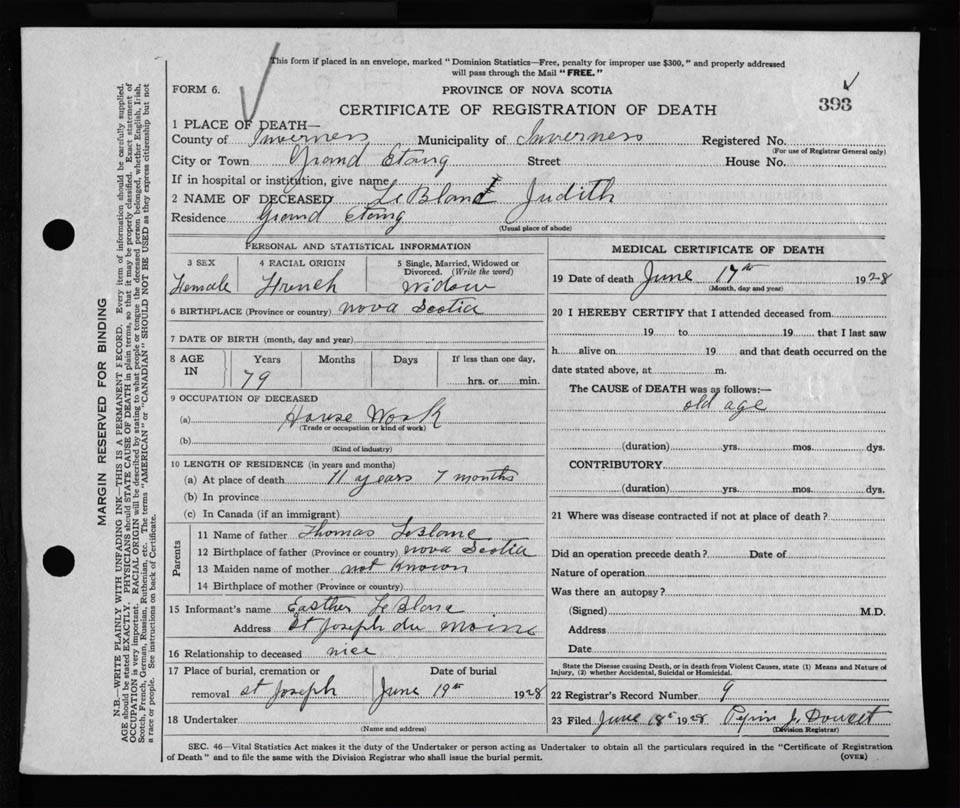 This form if placed in an envelope, marked "Dominion Statistics—Free, penalty for improper use $300," and properly addressed
will pass through the Mail "FREE."
FORM 6.
PROVINCE OF NOVA SCOTIA
393
CERTIFICATE OF REGISTRATION OF DEATH
1 PLACE OF DEATH—
County of Inverness Municipality of Inverness Registered No.
(For use of Registrar General only)
City or Town Grand Etang Street House No.
If in hospital or institution, give name
2 NAME OF DECEASED LeBlanc Judith
Residence Grand Etang
(Usual place of abode)
PERSONAL AND STATISTICAL INFORMATION
3 SEX 4 RACIAL ORIGIN 5 Single, Married, Widowed or
Divorced. (Write the word)
Female French Widow
6 BIRTHPLACE (Province or country) Nova Scotia
7 DATE OF BIRTH (month, day and year)
8 AGE Years Months Days If less than one day,
IN 79 hrs. or min.
9 OCCUPATION OF DECEASED
(a) House Work
(Trade or occupation or kind of work)
(b)
(Kind of industry)
10 LENGTH OF RESIDENCE (in years and months)
(a) At place of death 11 years 7 months
(b) In province
(c) In Canada (if an immigrant)
Parents
11 Name of father Thomas LeBlanc
12 Birthplace of father (Province or country) Nova Scotia
13 Maiden name of mother not Known
14 Birthplace of mother (Province or country)
15 Informant's name Easther LeBlanc
Address St Joseph du Moine
16 Relationship to deceased niece
17 Place of burial, cremation or Date of burial
removal St Joseph June 19th 1928
18 Undertaker
(Name and address)
MEDICAL CERTIFICATE OF DEATH
19 Date of death June 17th 1928
(Month, day and year)
20 I HEREBY CERTIFY that I attended deceased from
19 to 19 that I last saw
h alive on 19 and that death occurred on the
date stated above, at m.
The CAUSE of DEATH was as follows:—
old age
(duration) yrs. mos. dys.
CONTRIBUTORY
(duration) yrs. mos. dys.
21 Where was disease contracted if not at place of death?
Did an operation precede death? Date of
Nature of operation
Was there an autopsy?
(Signed) M.D.
Address
Date
State the Disease causing Death, or in death from Violent Causes, state (1) Means and Nature of
Injury, (2) whether Accidental, Suicidal or Homicidal.
22 Registrar's Record Number 9
23 Filed June 18th 1928 Pepin J. Doucet
(Division Registrar)
SEC. 46—Vital Statistics Act makes it the duty of the Undertaker or person acting as Undertaker to obtain all the particulars required in the "Certificate of Registration
of Death" and to file the same with the Division Registrar who shall issue the burial permit.
(OVER)
MARGIN RESERVED FOR BINDING
N.B.—WRITE PLAINLY WITH UNFADING INK—THIS IS A PERMANENT RECORD. Every item of information should be carefully supplied.
AGE should be stated EXACTLY. PHYSICIANS should STATE CAUSE OF DEATH in plain terms, so that it may be properly classified. Exact statement of
OCCUPATION is very important. RACIAL ORIGIN will be described by stating to what people or tongue the deceased person belonged, whether English, Irish,
Scotch, French, German, Russian, Ruthenian, etc. The terms "AMERICAN" or "CANADIAN" SHOULD NOT BE USED as they express citizenship but not
a race or people. See instructions on back of Certificate.